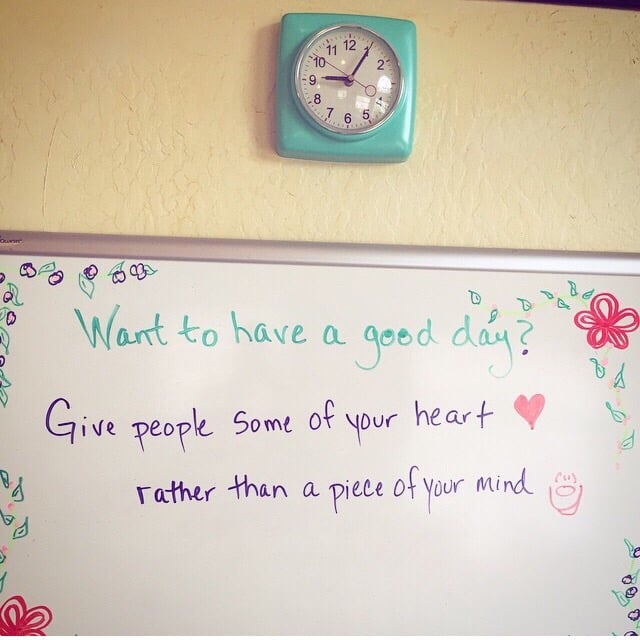 11 12 1
10 2
9
8
7 6 5
Want to have a good day?
Give people some of your heart
rather than a piece of your mind